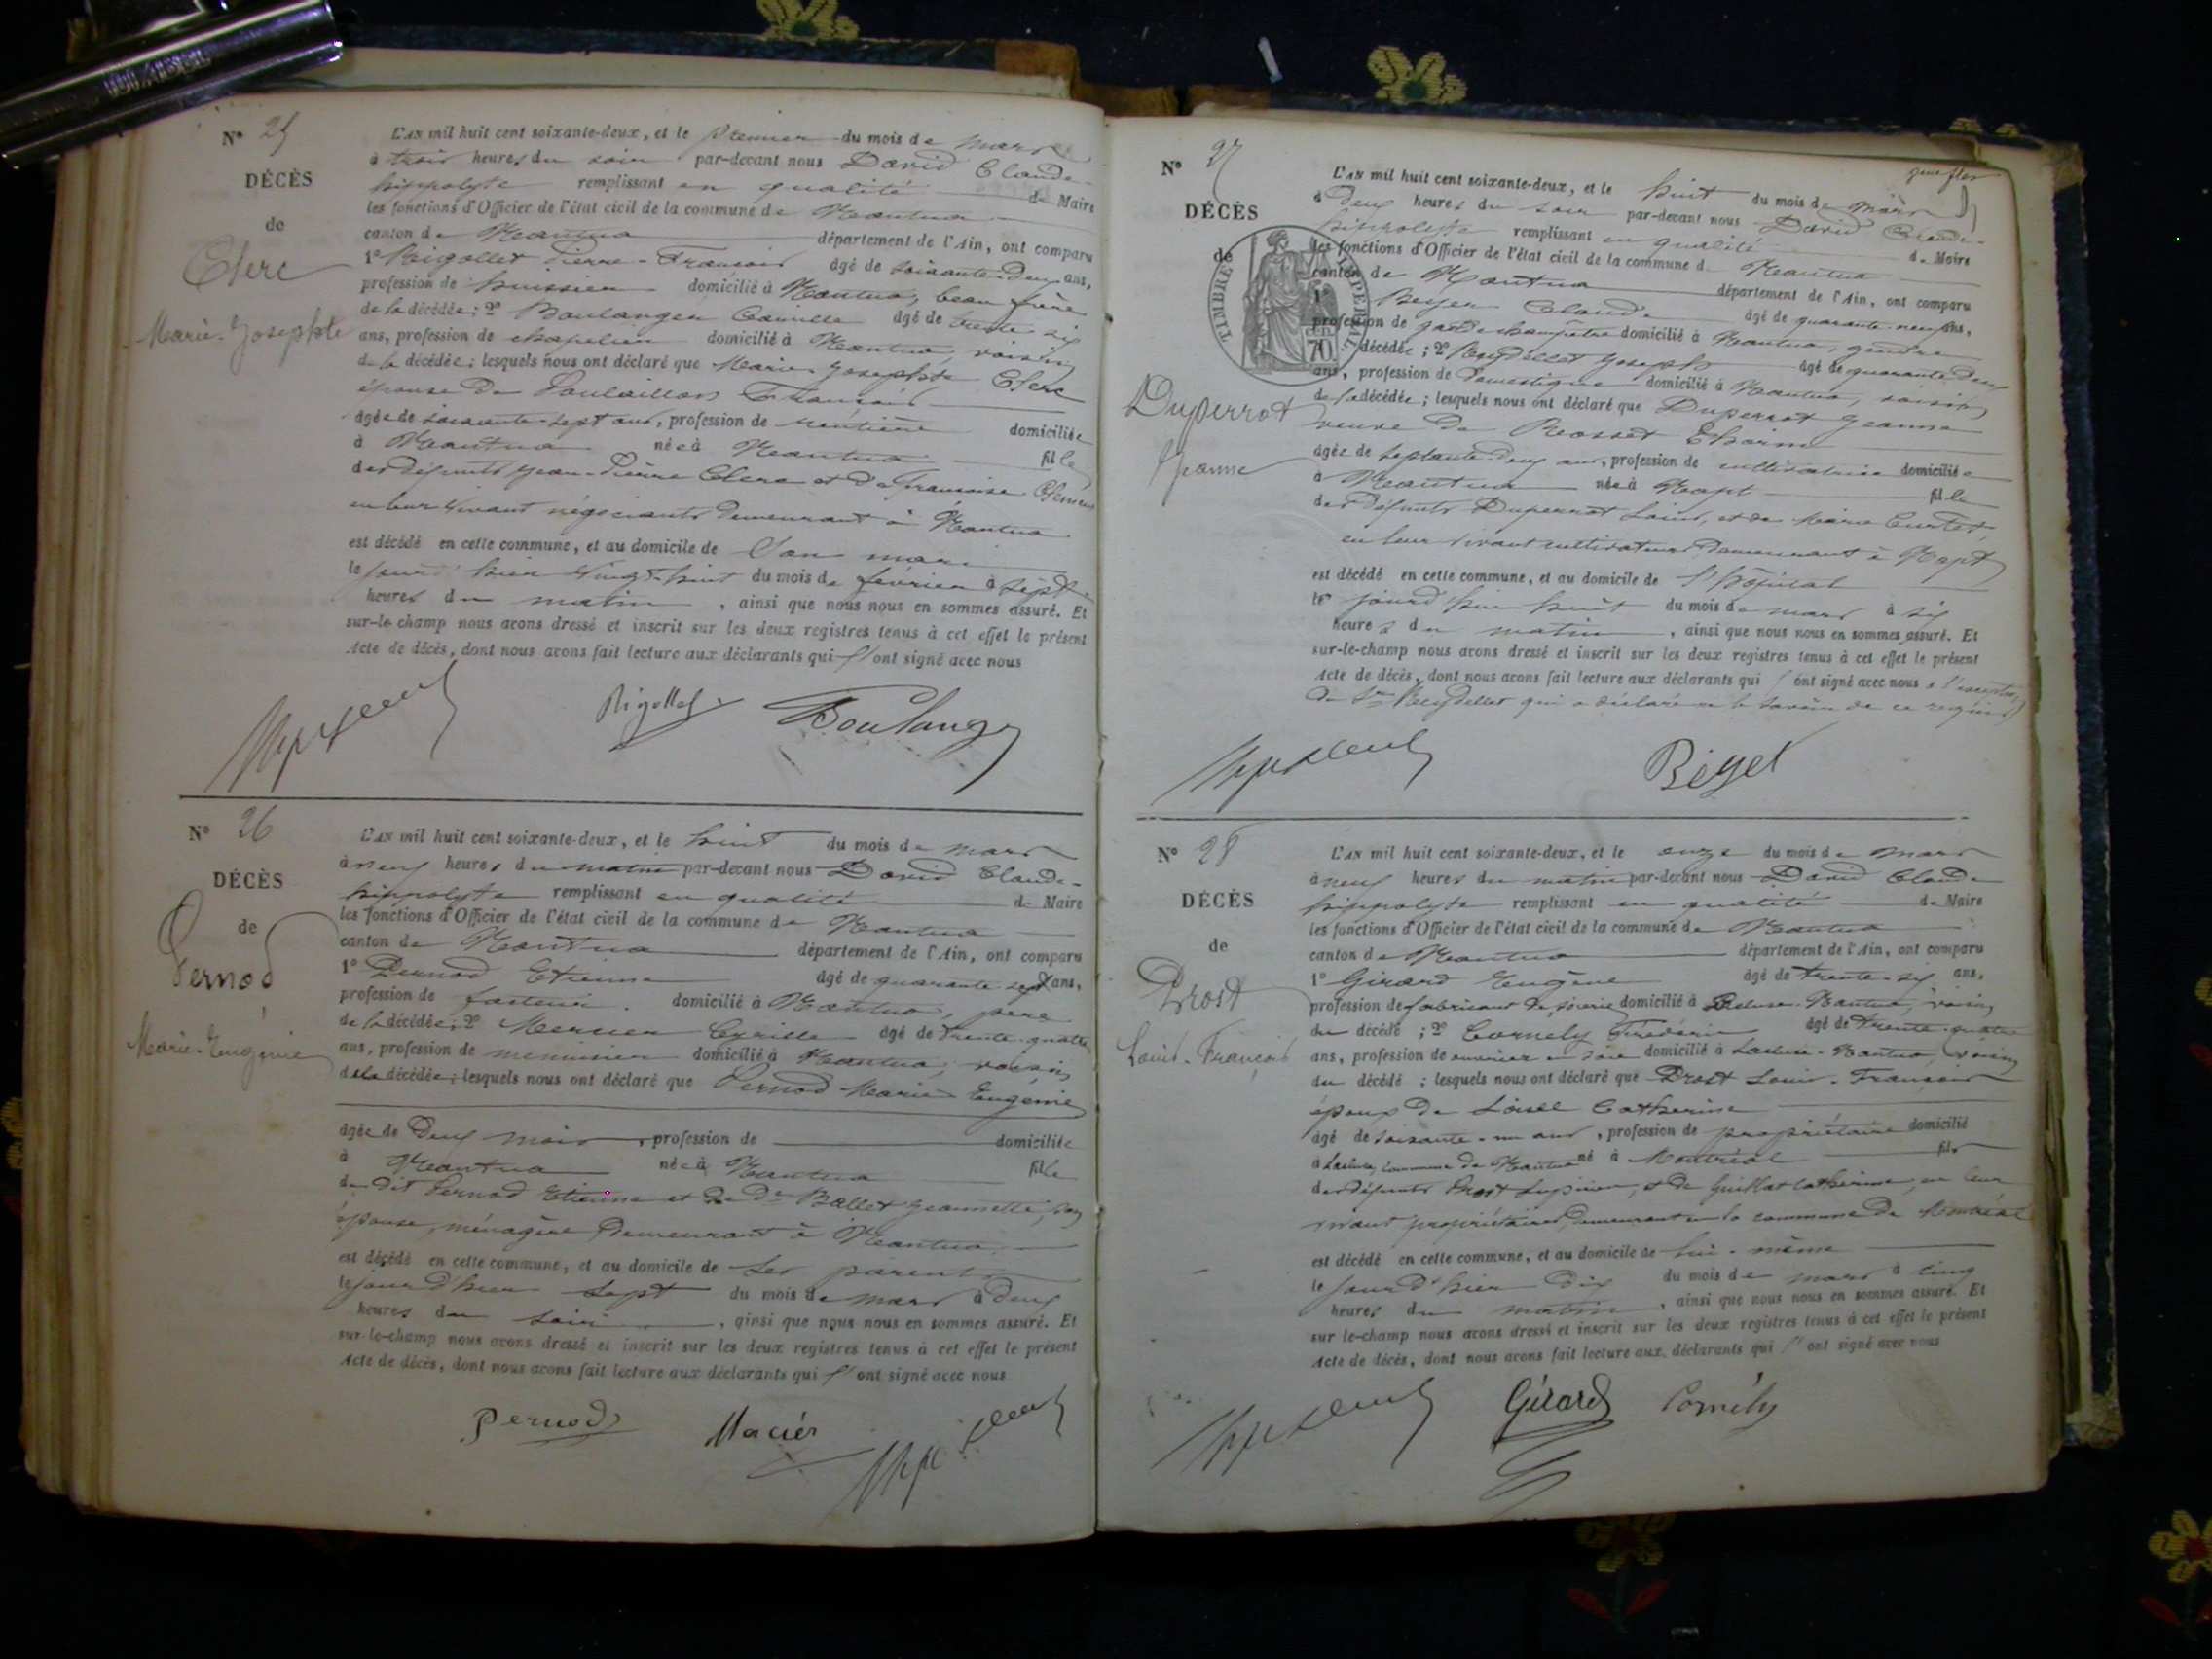 N° 25
DÉCÈS
de
Clerc
Marie-Josephte
L'AN mil huit cent soixante-deux, et le premier du mois de mars
à trois heures du soir par-devant nous David Claude-
hippolyte remplissant en qualité de Maire
les fonctions d'Officier de l'état civil de la commune de Nantua
canton de Nantua département de l'Ain, ont comparu
1° Rigollet Pierre-François âgé de soixante-deux ans,
profession de huissier domicilié à Nantua, beau frère
de la décédée; 2° Boulanger Camille âgé de trente six
ans, profession de chapelier domicilié à Nantua, voisin
de la décédée; lesquels nous ont déclaré que Marie-Josephte Clerc
épouse de Poulaillon François
âgée de soixante-sept ans, profession de rentière domiciliée
à Nantua née à Nantua fille
des défunts Jean-Pierre Clerc et de françoise
en leur vivant négociants demeurant à Nantua
est décédé en cette commune, et au domicile de son mari
le jour d'hier vingt-huit du mois de février à sept
heures du matin, ainsi que nous nous en sommes assuré. Et
sur-le-champ nous avons dressé et inscrit sur les deux registres tenus à cet effet le présent
Acte de décès, dont nous avons fait lecture aux déclarants qui l'ont signé avec nous
Rigollet Boulanger
N° 26
DÉCÈS
de
Pernod
Marie-Eugénie
L'AN mil huit cent soixante-deux, et le huit du mois de mars
à neuf heures du matin par-devant nous David Claude-
hippolyte remplissant en qualité de Maire
les fonctions d'Officier de l'état civil de la commune de Nantua
canton de Nantua département de l'Ain, ont comparu
1° Pernod Etienne âgé de quarante sept ans,
profession de facteur domicilié à Nantua, père
de la décédée; 2° Mercier Cyrille âgé de trente-quatre
ans, profession de menuisier domicilié à Nantua, voisin
de la décédée; lesquels nous ont déclaré que Pernod Marie Eugénie
âgée de deux mois, profession de domiciliée
à Nantua née à Nantua fille
du dit Pernod Etienne et de De Ballet Jeannette, son
épouse, ménagère demeurant à Nantua
est décédé en cette commune, et au domicile de ses parents
le jour d'hier sept du mois de mars à deux
heures du soir, ainsi que nous nous en sommes assuré. Et
sur-le-champ nous avons dressé et inscrit sur les deux registres tenus à cet effet le présent
Acte de décès, dont nous avons fait lecture aux déclarants qui l'ont signé avec nous
Pernod
N° 27
DÉCÈS
de
TIMBRE IMPERIAL
70
Duperrot
Jeanne
L'AN mil huit cent soixante-deux, et le huit du mois de mars
à deux heures du soir par-devant nous David Claude-
hippolyte remplissant en qualité de Maire
les fonctions d'Officier de l'état civil de la commune de Nantua
canton de Nantua département de l'Ain, ont comparu
1° Claude âgé de quarante-neuf ans,
profession de garde champêtre domicilié à Nantua, gendre
décédée; 2° Neydellet Joseph âgé de quarante deux
ans, profession de domestique domicilié à Nantua, voisin
de la décédée; lesquels nous ont déclaré que Duperrot Jeanne
veuve de Rosset
âgée de septante-deux ans, profession de cultivatrice domiciliée
à Nantua née à Napt fille
des défunts Duperrot Louis, et de Marie Curtet,
en leur vivant cultivateurs demeurant à Napt
est décédé en cette commune, et au domicile de l'hôpital
le jourd'hui huit du mois de mars à six
heures du matin, ainsi que nous nous en sommes assuré. Et
sur-le-champ nous avons dressé et inscrit sur les deux registres tenus à cet effet le présent
Acte de décès, dont nous avons fait lecture aux déclarants qui l'ont signé avec nous à l'exception
du Sr Neydellet qui a déclaré ne le savoir de ce requis
N° 28
DÉCÈS
de
Prost
Louis-François
L'AN mil huit cent soixante-deux, et le onze du mois de mars
à neuf heures du matin par-devant nous David Claude
hippolyte remplissant en qualité de Maire
les fonctions d'Officier de l'état civil de la commune de Nantua
canton de Nantua département de l'Ain, ont comparu
1° Girard Eugène âgé de trente-six ans,
profession de fabricant de soierie domicilié à Nantua, voisin
du décédé; 2° Cornely Frédéric âgé de trente-quatre
ans, profession de ouvrier en soie domicilié à Lacluse-Nantua, voisin
du décédé; lesquels nous ont déclaré que Prost Louis-François
époux de Catherine
âgé de soixante-un ans, profession de propriétaire domicilié
à Lacluse, commune de Nantua né à Montréal fils
des défunts Prost et de Guillot Catherine, en leur
vivant propriétaires demeurant en la commune de Montréal
est décédé en cette commune, et au domicile de lui-même
le jour d'hier dix du mois de mars à cinq
heures du matin, ainsi que nous nous en sommes assuré. Et
sur-le-champ nous avons dressé et inscrit sur les deux registres tenus à cet effet le présent
Acte de décès, dont nous avons fait lecture aux déclarants qui l'ont signé avec nous
Girard Cornély